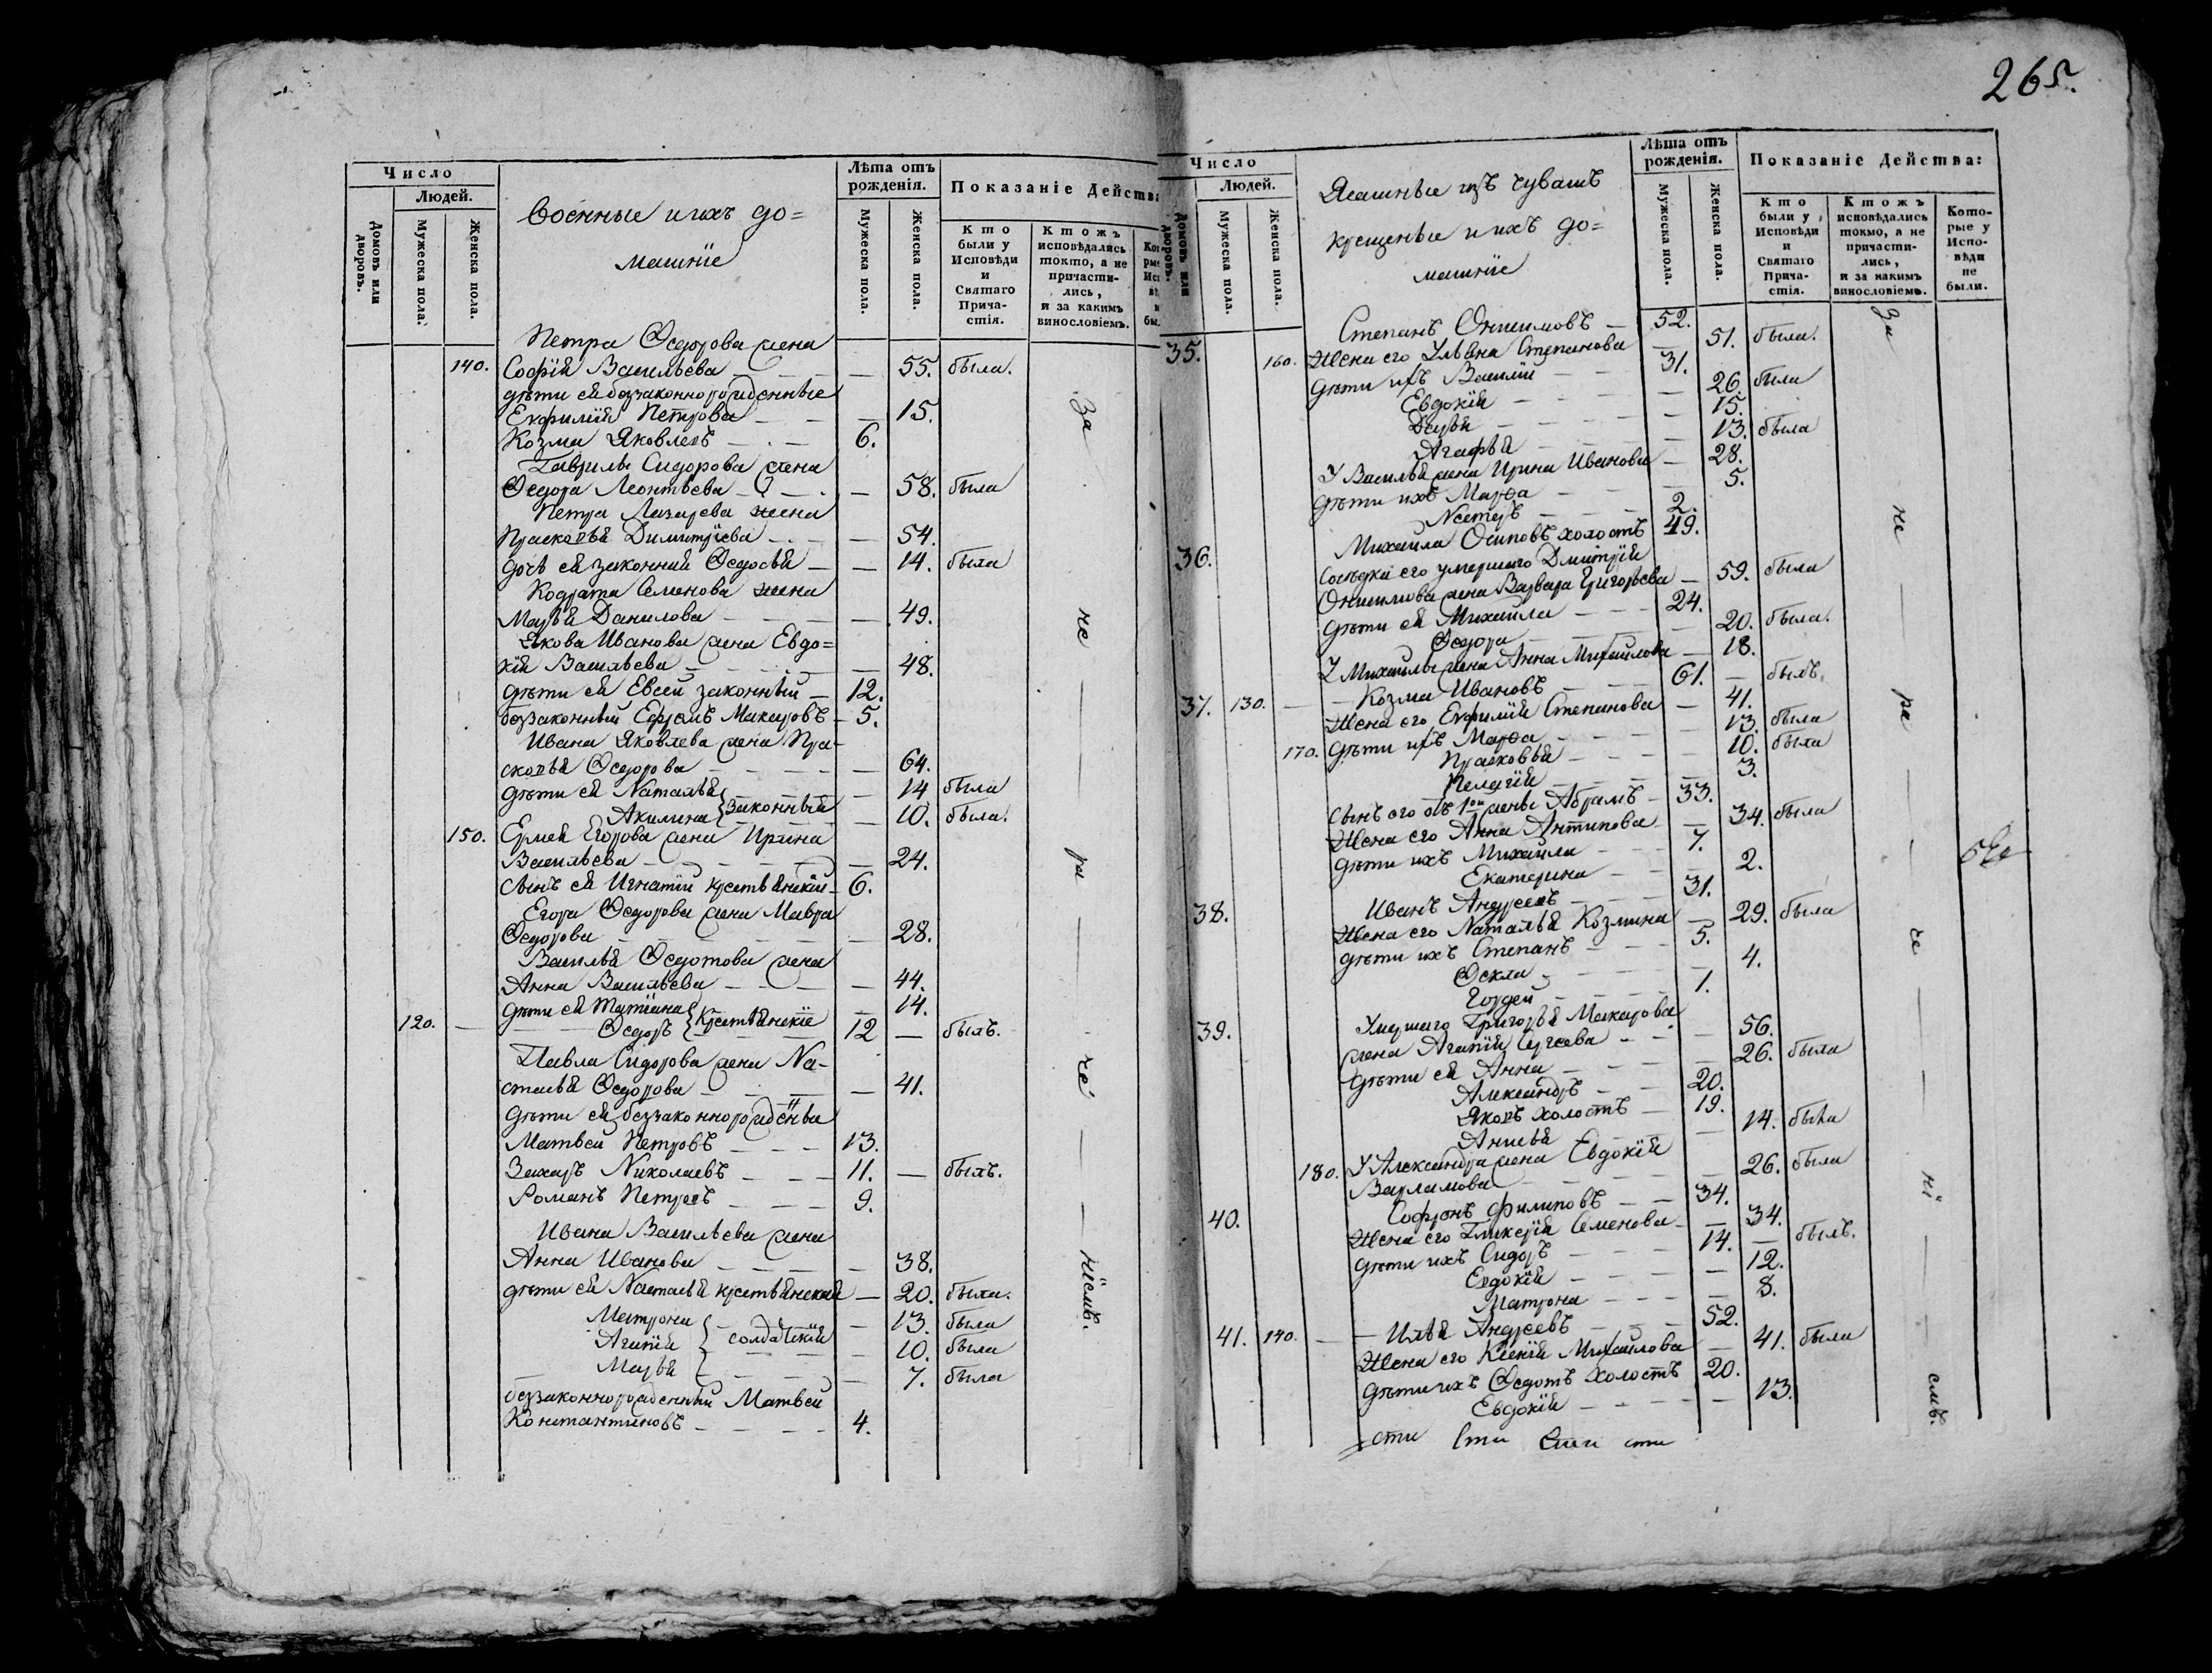 265.
Число
Людей.
Домовъ или дворовъ.
Мужеска пола.
Женска пола.
Военные и ихъ до=
машніе
Лѣта отъ рожденія.
Мужеска пола.
Женска пола.
Показаніе Действ
Кто были у Исповѣди и Святаго Прича-стія.
Ктожъ исповѣдались токто, а не причасти-лись, и за какимъ винословіемъ.
Петра Ѳедорова жена
140. Софія Васильева — — 55. была.
дѣти ея беззаконнорожденные
Евфимія Петрова — — 15.
Козма Яковлевъ — — 6.
Гаврилы Сидорова жена
Ѳедора Леонтьева — — 58. была
Петра Лазарева жена
Прасковья Димитріева — — 54.
дочь ея законная Ѳедосья — — 14. была
Кодрата Семенова жена
Марья Данилова — — 49.
Якова Иванова жена Евдо=
кія Васильева — — 48.
дѣти ея Евсей законный — 12.
беззаконный Ефремъ Макаровъ — 5.
Ивана Яковлева жена Пра-
сковья Ѳедорова — — 64.
дѣти ея Наталья } законныя — 14 была
Акилина — 10. была.
150. Ермея Егорова жена Ирина
Васильева — — 24.
сынъ ея Игнатій крестьянскій — 6.
Егора Ѳедорова жена Мавра
Ѳедорова — — 28.
Василья Ѳедотова жена
Анна Васильева — — 44.
дѣти ея Татіана } крестьянскіе — 14.
120. — Ѳедоръ — 12 — былъ.
Павла Сидорова жена На-
стасья Ѳедорова — — 41.
дѣти ея беззаконнорожденны
Матвей Петровъ — — 13.
Захаръ Николаевъ — — 11. — былъ.
Романъ Петровъ — — 9.
Ивана Васильева жена
Анна Иванова — — 38.
дѣти ея Настасья крестьянская — 20. была.
Матрона } солдатскія — 13. была
Агапія — 10. была
Марья — 7. была
беззаконнорожденный Матвей
Константиновъ — — 4.
За не ра че ніемъ.
Число
Людей.
Домовъ или дворовъ.
Мужеска пола.
Женска пола.
Ясашные изъ чувашъ
крещеные и ихъ до=
машніе
Лѣта отъ рожденія.
Мужеска пола.
Женска пола.
Показаніе Действа:
Кто были у Исповѣди и Святаго Прича-стія.
Ктожъ исповѣдались токмо, а не причасти-лись, и за какимъ винословіемъ.
Кото-рые у Испо-вѣди не были.
35. Степанъ Онисимовъ — 52.
160. Жена его Ульяна Степанова — 51. была.
дѣти ихъ Василій — — 31.
Евдокія — — 26 была
Дарья — — 15.
Агафья — — 13. была
У Василья жена Ирина Иванова — 28.
дѣти ихъ Марѳа — — 5.
Нестеръ — — 2.
36. Михаила Осиповъ холостъ 49.
Сосѣдка его умершаго Дмитрія
Онисимова жена Варвара Григорьева — 59. была
дѣти ея Михаила — — 24.
Ѳедора — — 20. была.
У Михаилы жена Анна Михайлова — 18.
37. 130. — Козма Ивановъ — 61. — былъ.
Жена его Евфимія Степанова — 41.
170. дѣти ихъ Марѳа — — 13. была
Прасковья — — 10. была
Пелагія — — 3.
Сынъ его отъ 1ой жены Абрамъ — 33.
Жена его Анна Антипова — 34. была
дѣти ихъ Михаила — — 7.
Екатерина — — 2.
38. Иванъ Андреевъ — — 31.
Жена его Наталья Козмина — 29. была
дѣти ихъ Степанъ — — 5.
Ѳекла — — 4.
Гордей — — 1.
39. Умершаго Григорья Макарова
жена Агапія Сергеева — — 56.
дѣти ея Анна — — 26. была
Александръ — — 20.
Яковъ холостъ — 19.
Анисья — 14. была
180. У Александра жена Евдокія
Варламова — 26. была
40. Софронъ Филиповъ — — 34.
Жена его Гликерія Семенова — 34.
дѣти ихъ Сидоръ — — 14. — былъ.
Евдокія — — 12.
Матрона — — 8.
41. 140. — Илья Андреевъ — — 52.
Жена его Ксенія Михайлова — 41. была
дѣти ихъ Ѳедотъ холостъ 20.
Евдокія — — 13.
За не ра че ні емъ.